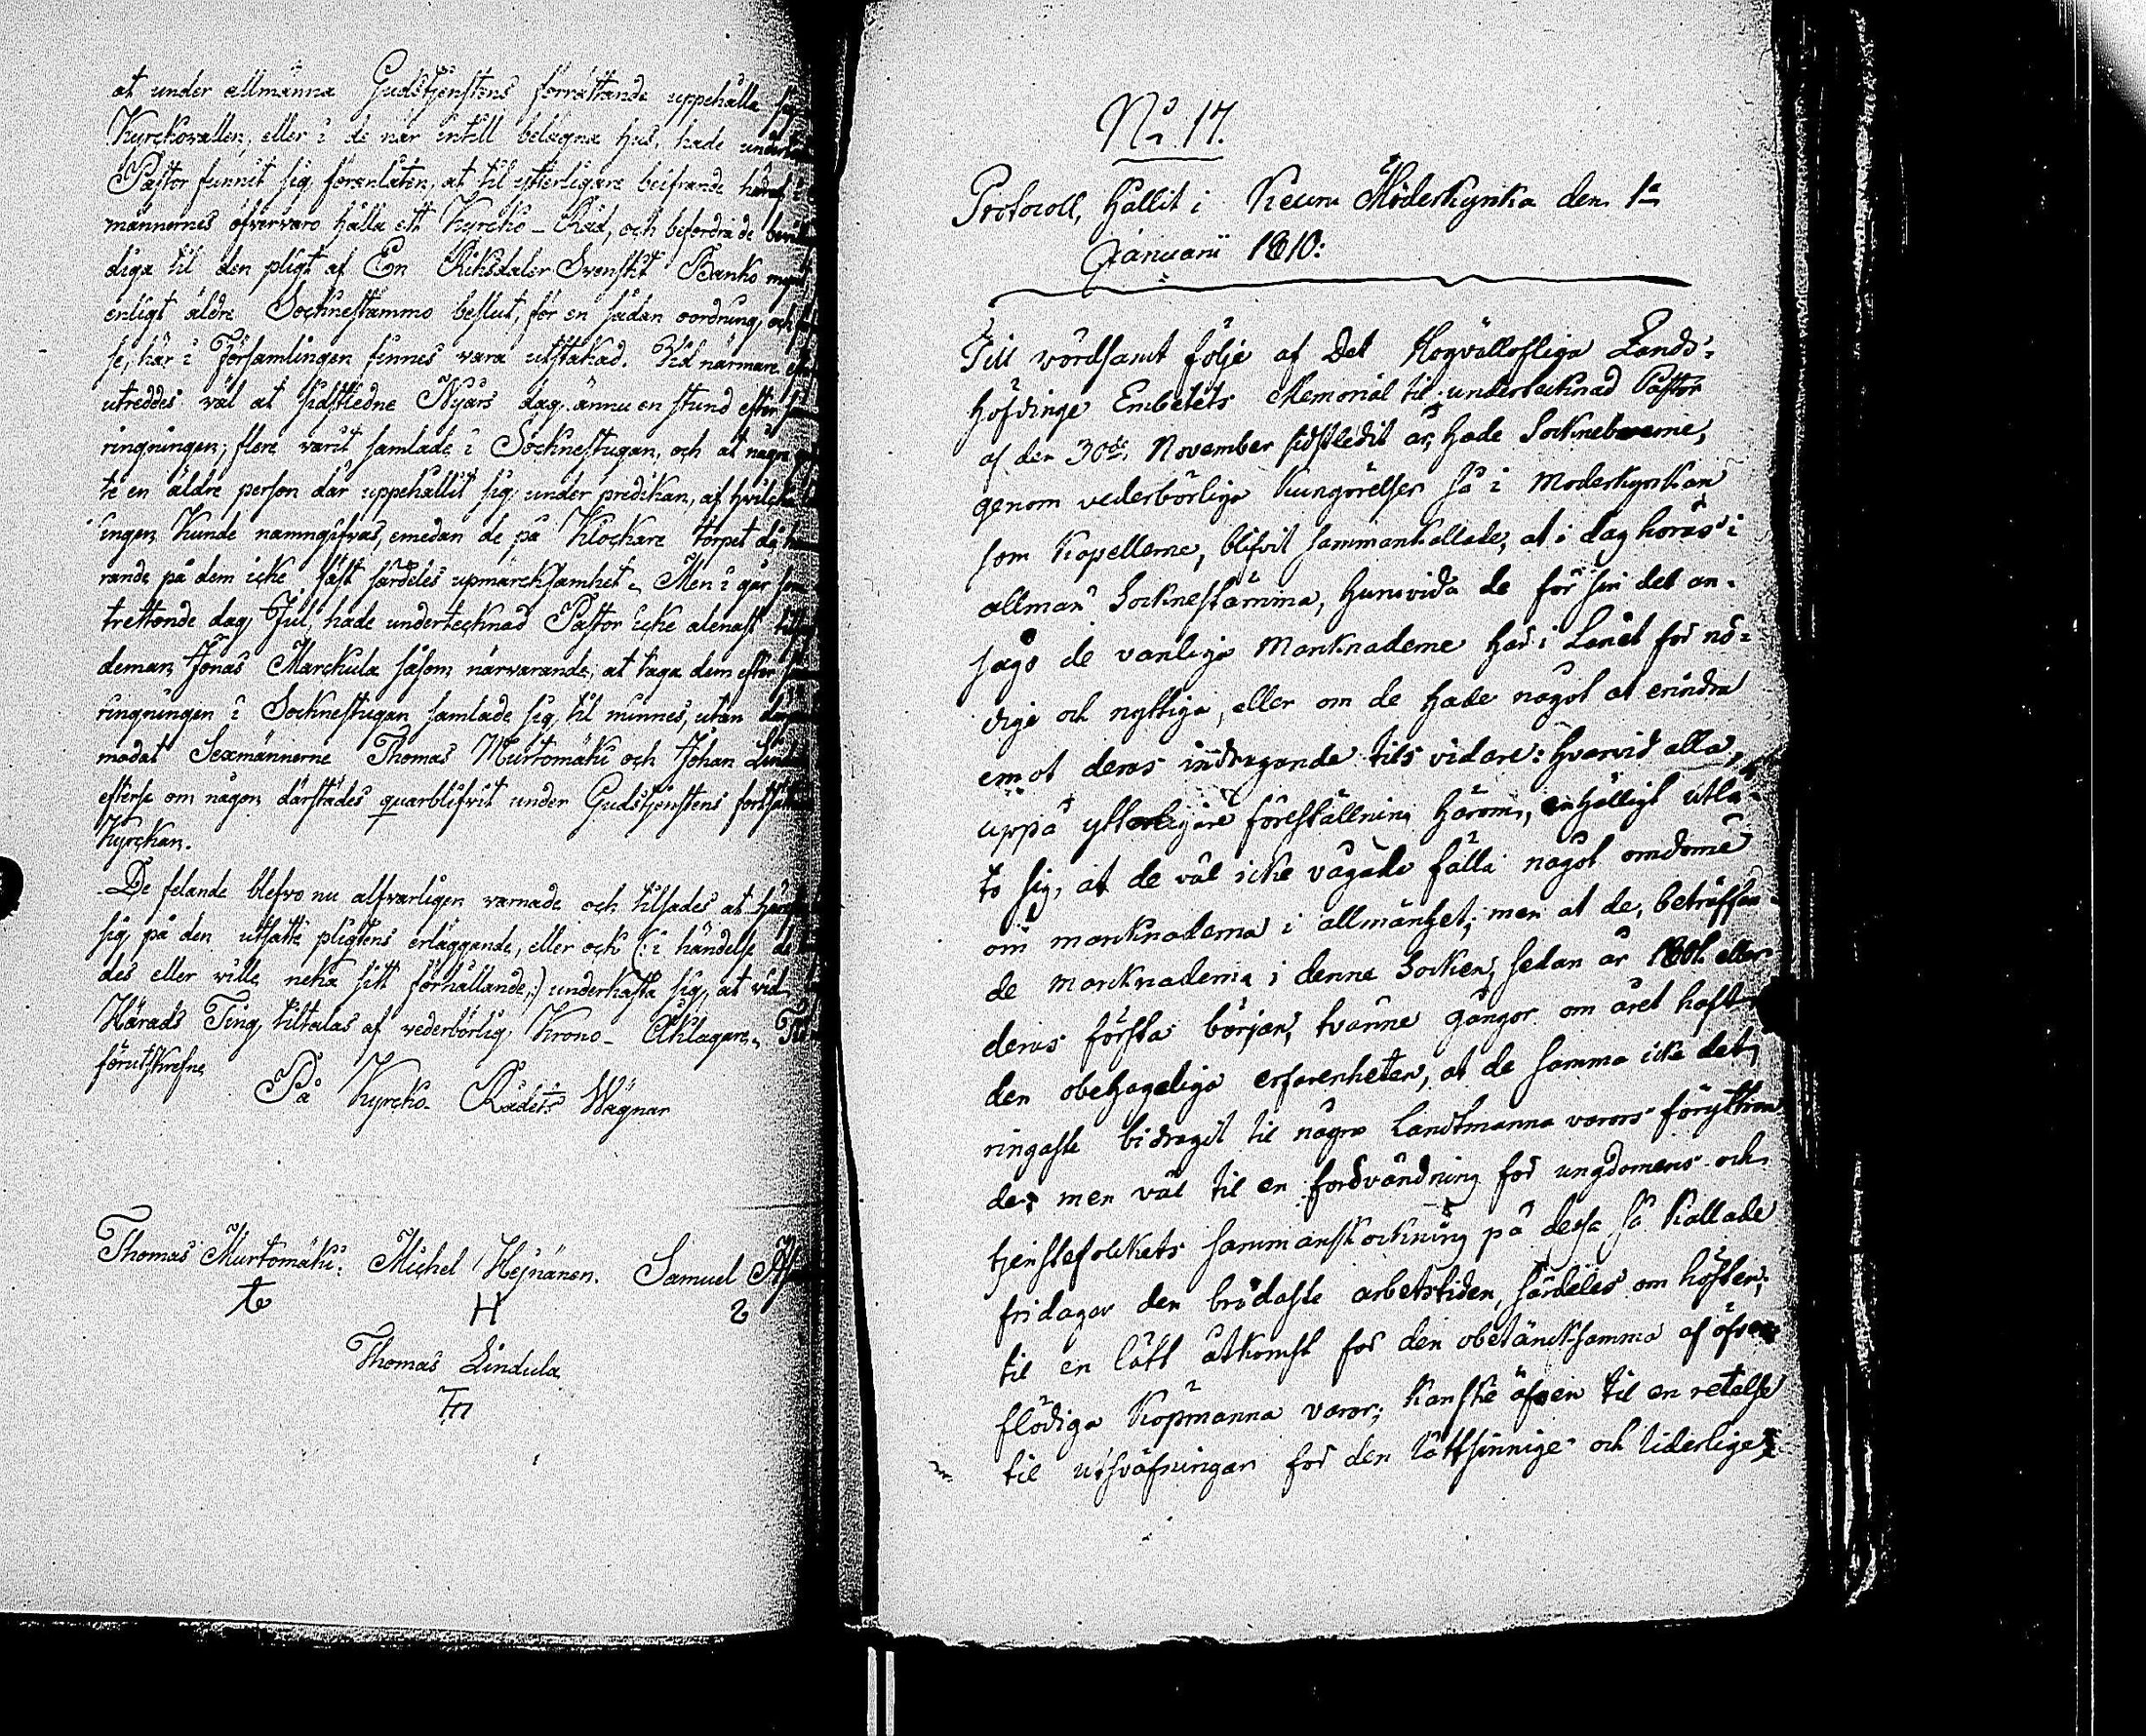 at under allmänna Gudstjenstens förrättande uppehålla sig
Kyrckovallen, eller i de när intill belägna hus, hade
Pastor funnit sig föranlåten, at til ytterligare beifrande häraf i
männernes öfvervaro hålla ett Kyrcko-Råd, och befordra de
diga til den pligt af En Riksdaler Svenskt Banko
enligt äldre Socknestämmo beslut, för en sådan oordning, och
se, här i Församlingen finnes vara utstakad. Vid närmare
utreddes väl at sidstledne Nyårs dag, ännu en stund efter
ringningen, flere varit samlade i Socknestugan, och at någre
te en äldre person där uppehållit sig under predikan, af hvilcka
ingen kunde namngifvas, emedan de på Klockare torpet då
rande på dem icke fäst särdeles upmärcksamhet. Men i går som
trettonde dag Jul, hade undertecknad Pastor icke alenast
deman Jonas Marckula såsom närvarande, at taga dem efter
ringningen i Socknestugan samlade sig, til minnes, utan
modat Sexmännerne Thomas Murtomäki och Johan
efterse om någon därstädes quarblifvit under Gudstjenstens
Kyrckan.
De felande blefvo nu alfvarligen varnade och tilsades at
sig på den utsatte pligtens erläggande, eller och (: i händelse de
des eller ville neka sitt förhållande,:) underkasta sig, at vid
Härads Ting tiltalas af vederbörlig Krono-Åklagare.
förutskrefne
På Kyrcko-Rådets Wägnar
Thomas Murtomäki. Michel Hejnänen. Samuel
H
Thomas Lindula
No 17.
Protocoll, hållit i Keuru Moderkyrka den 1
Januarii 1810:
Till vördsamt följe af Det Högvällofliga Lands-
höfdinge Embetets Memorial til undertecknad Pastor
af den 30de November sidstledit år, hade Sockneboerne,
genom vederbörliga kungörelser så i Moderkyrkan
som Kapellerne, blifvit sammankallade, at i dag höras i
allmän Socknestämma, huruvida de för sin del an-
sågo de vanliga Marknaderne här i Länet för nö-
diga och nyttiga, eller om de hade något at erindra
emot deras indragande tils vidare: hvarvid alla,
uppå ytterligare föreställning härom, enhälligt utlä-
to sig, at de väl icke vågade fälla något omdöme
om marknaderna i allmänhet; men at de, beträffan-
de marcknaderna i denne Socken, sedan år 1801 eller
deras första början, tvänne gångor om året haft
den obehageliga erfarenheten, at de samma icke det
ringaste bidragit til någre Landtmanna varors föryttran-
de; men väl til en förevändning för ungdomens och
tjenstefolckets sammanskockning på dessa så kallade
fridagar den brådaste arbetstiden, särdeles om hösten;
til en lätt åtkomst för den obetäncksamma af öfver-
flödiga Köpmanna varor; kanske äfven til en retelse
til utsväfningar för den lättsinnige och liderlige